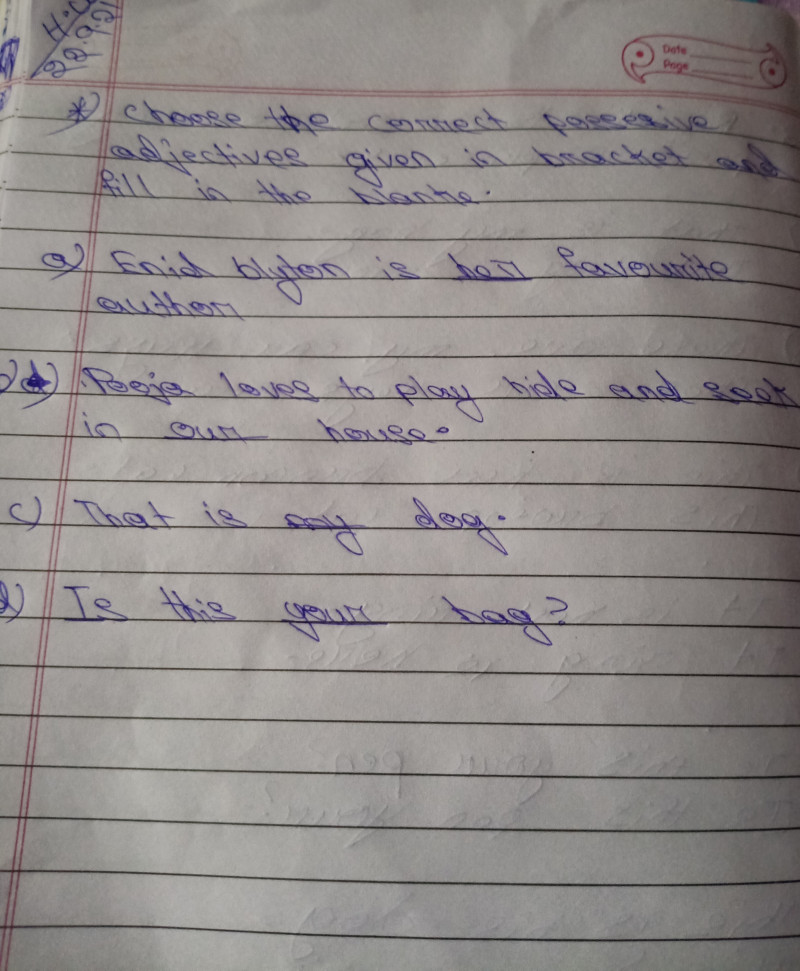 H.W
22.9.21
Date
Page
*) Choose the correct possessive
adjectives given in bracket and
fill in the blanks.
a) Enid blyton is her favourite
author
b) Pooja loves to play hide and seek
in our house.
c) That is my dog.
d) Is this your bag?